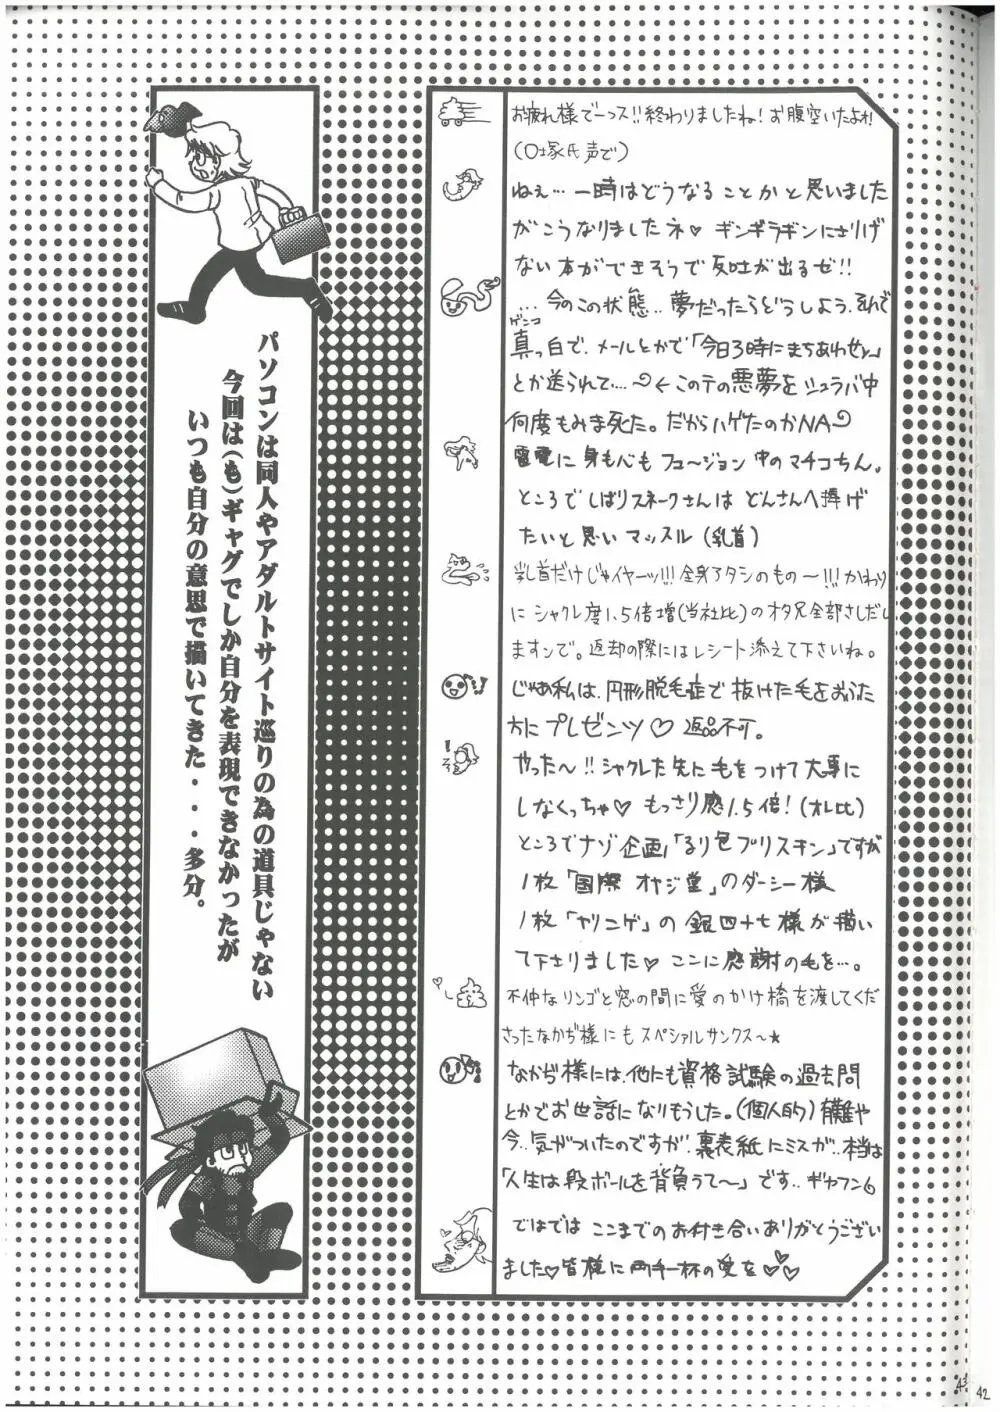 お疲れ様でーっス!!終わりましたね!お腹空いたよォ!
(口塚氏声で)
ねぇ…一時はどうなることかと思いました
がこうなりましたネ♥ ギンギラギンにさりげ
ない本ができそうで反吐が出るぜ!!
…今のこの状態..夢だったらどうしよう、それで
ゲンコ
真っ白で、メールとかで「今日3時にまちあわせ
とか送られて…. ←このテの悪夢をシュラバ中
何度もみま死た。だからハゲたのかNA
雷電に身も心もフュ〜ジョン中のマチコちん。
ところでしばりスネークさんは どんさんへ捧げ
たいと思いマッスル(乳首)
乳首だけじゃイヤーッ!!!全身アタシのもの〜!!!かわり
にシャクレ度1.5倍増(当社比)のオタ兄全部さしだし
ますンで。返却の際にはレシート添えて下さいね。
じゃあ私は、円形脱毛症で抜けた毛をおうた
方にプレゼンツ♡返品不可。
やった〜!!シャクレた先に毛をつけて大事に
しなくっちゃ♥ もっさり感1.5倍!(オレ比)
ところでナゾ企画「るり色プリスキン」ですが
1枚「国際オヤジ堂」のダーシー様
1枚「ヤリニゲ」の銀四十七様が描い
て下さりました♥ ここに感謝の毛を…。
不仲なリンゴと窓の間に愛のかけ橋を渡してくだ
さったなかぢ様にもスペシャルサンクス〜★
なかぢ様には、他にも資格試験の過去問
とかでお世話になりもうした。(個人的)有難や
今..気がついたのですが、裏表紙にミスが..本当は
「人生は段ボールを背負うて〜」です..ギャフン
ではでは ここまでのお付き合いありがとうござい
ました♥皆様に両手一杯の愛を♥♡♡
パソコンは同人やアダルトサイト巡りの為の道具じゃない
今回は(も)ギャグでしか自分を表現できなかったが
いつも自分の意思で描いてきた・・・多分。
43
42